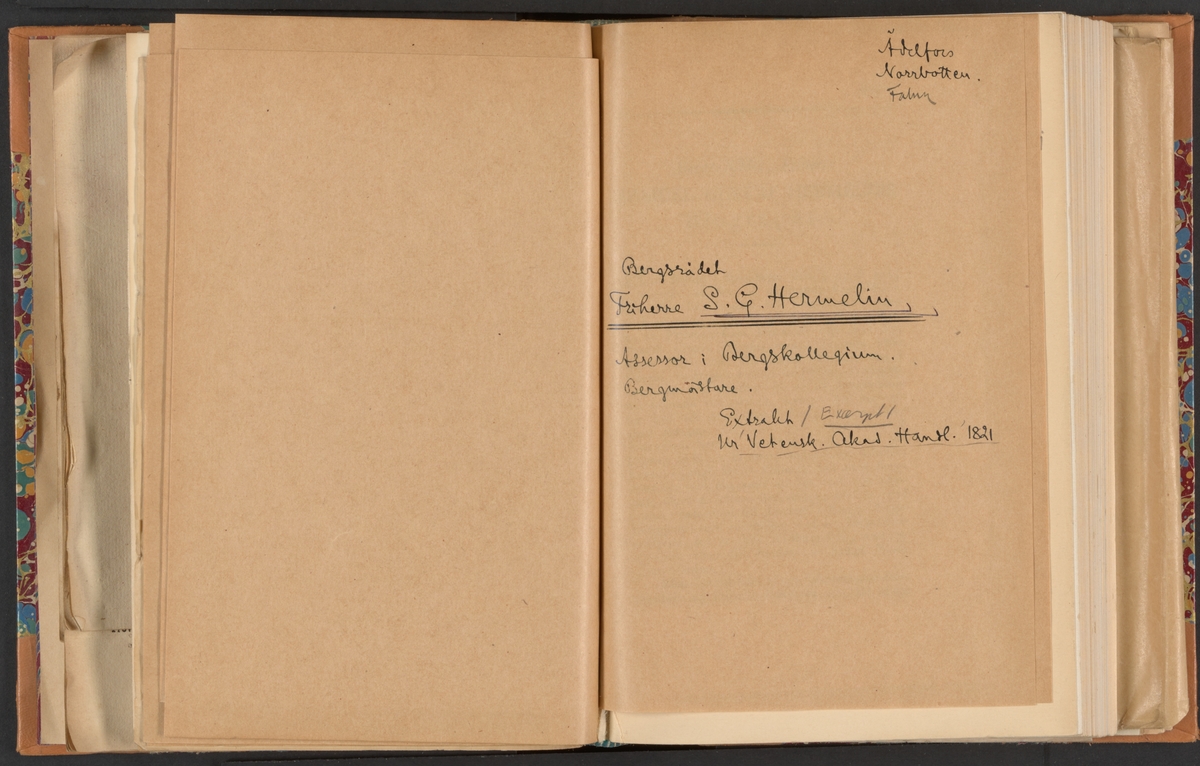 Ädelfors
Norrbotten.
Falun
Bergsrådet
Friherre S. G. Hermelin,
Assessor i Bergskollegium.
Bergmästare.
Extrakt / Excerpt /
Ur Vetensk. Akad. Handl. 1821